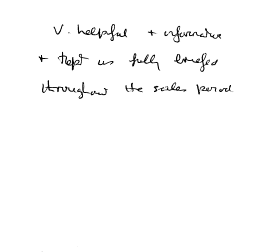 V. helpful + informative
+ kept us fully briefed
throughout the sales period